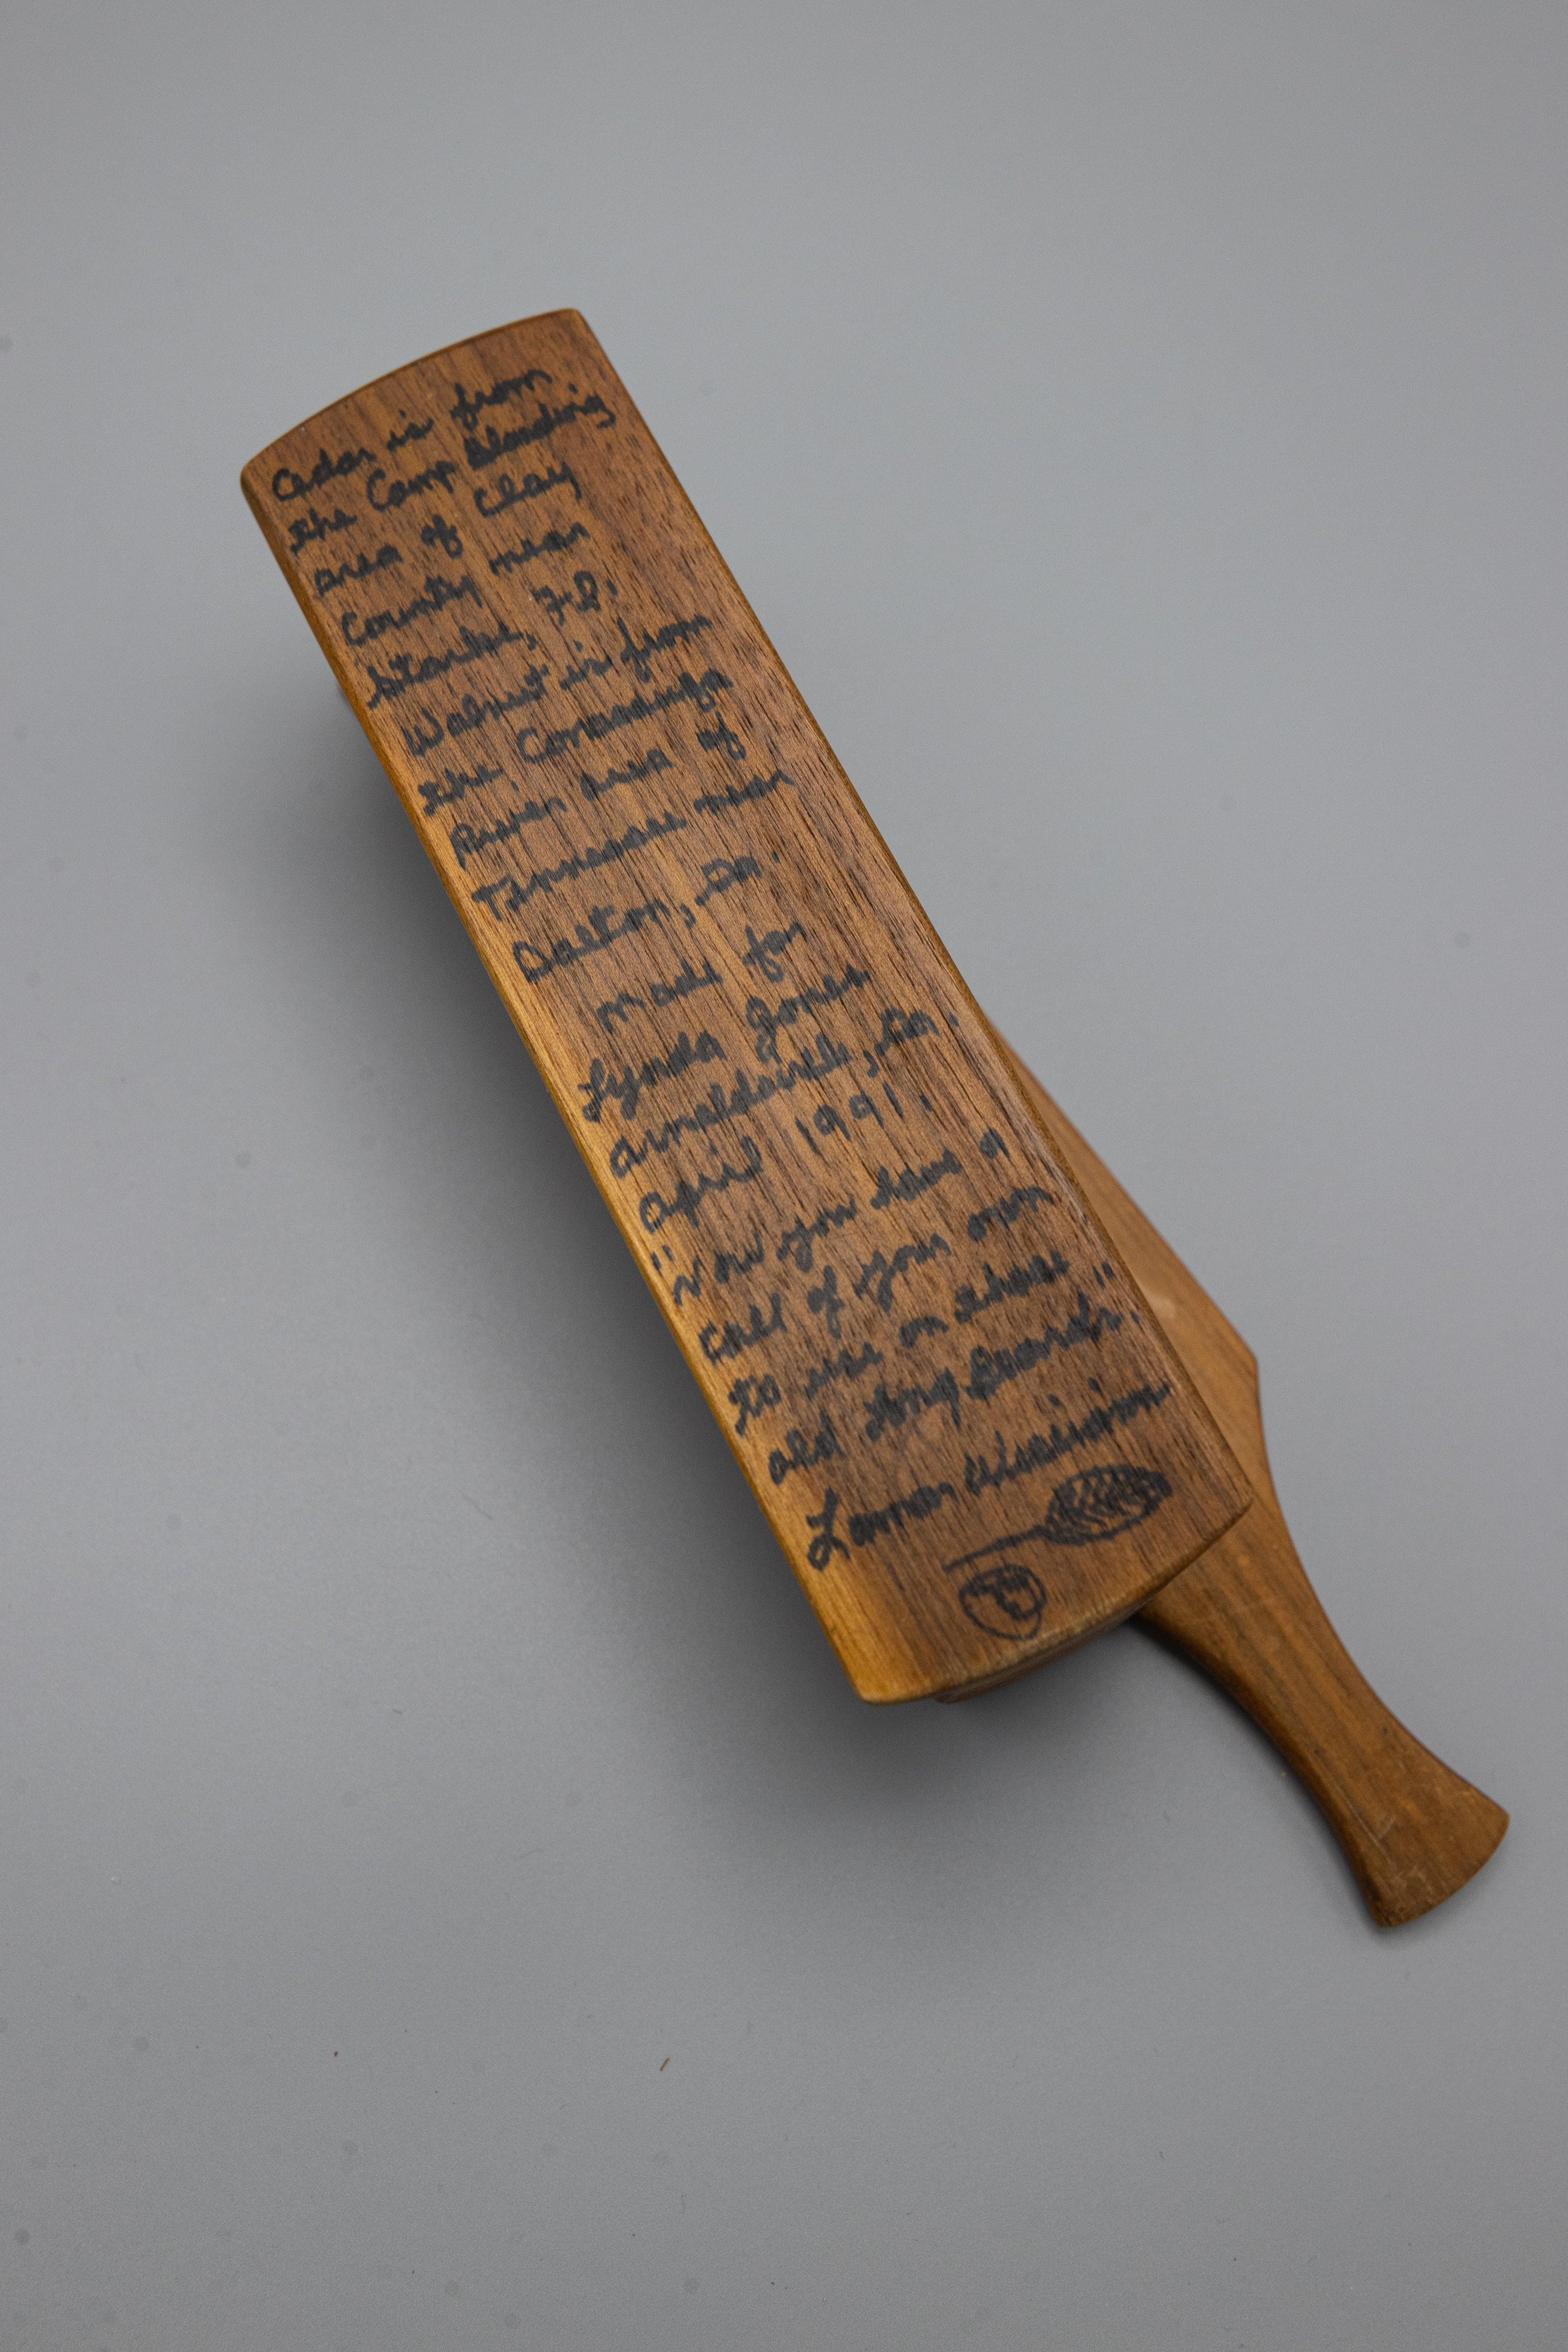 Cedar is from
the Camp Blanding
area of Clay
County near
Starke, Fl.
Walnut is from
the Conasauga
River area of
Tennessee near
Dalton, Ga.
made for
Lynda Jones
Arnoldsville, Ga.
April 1991.
"Now you have a
call of your own
to use on those
old long beards."
Lamar